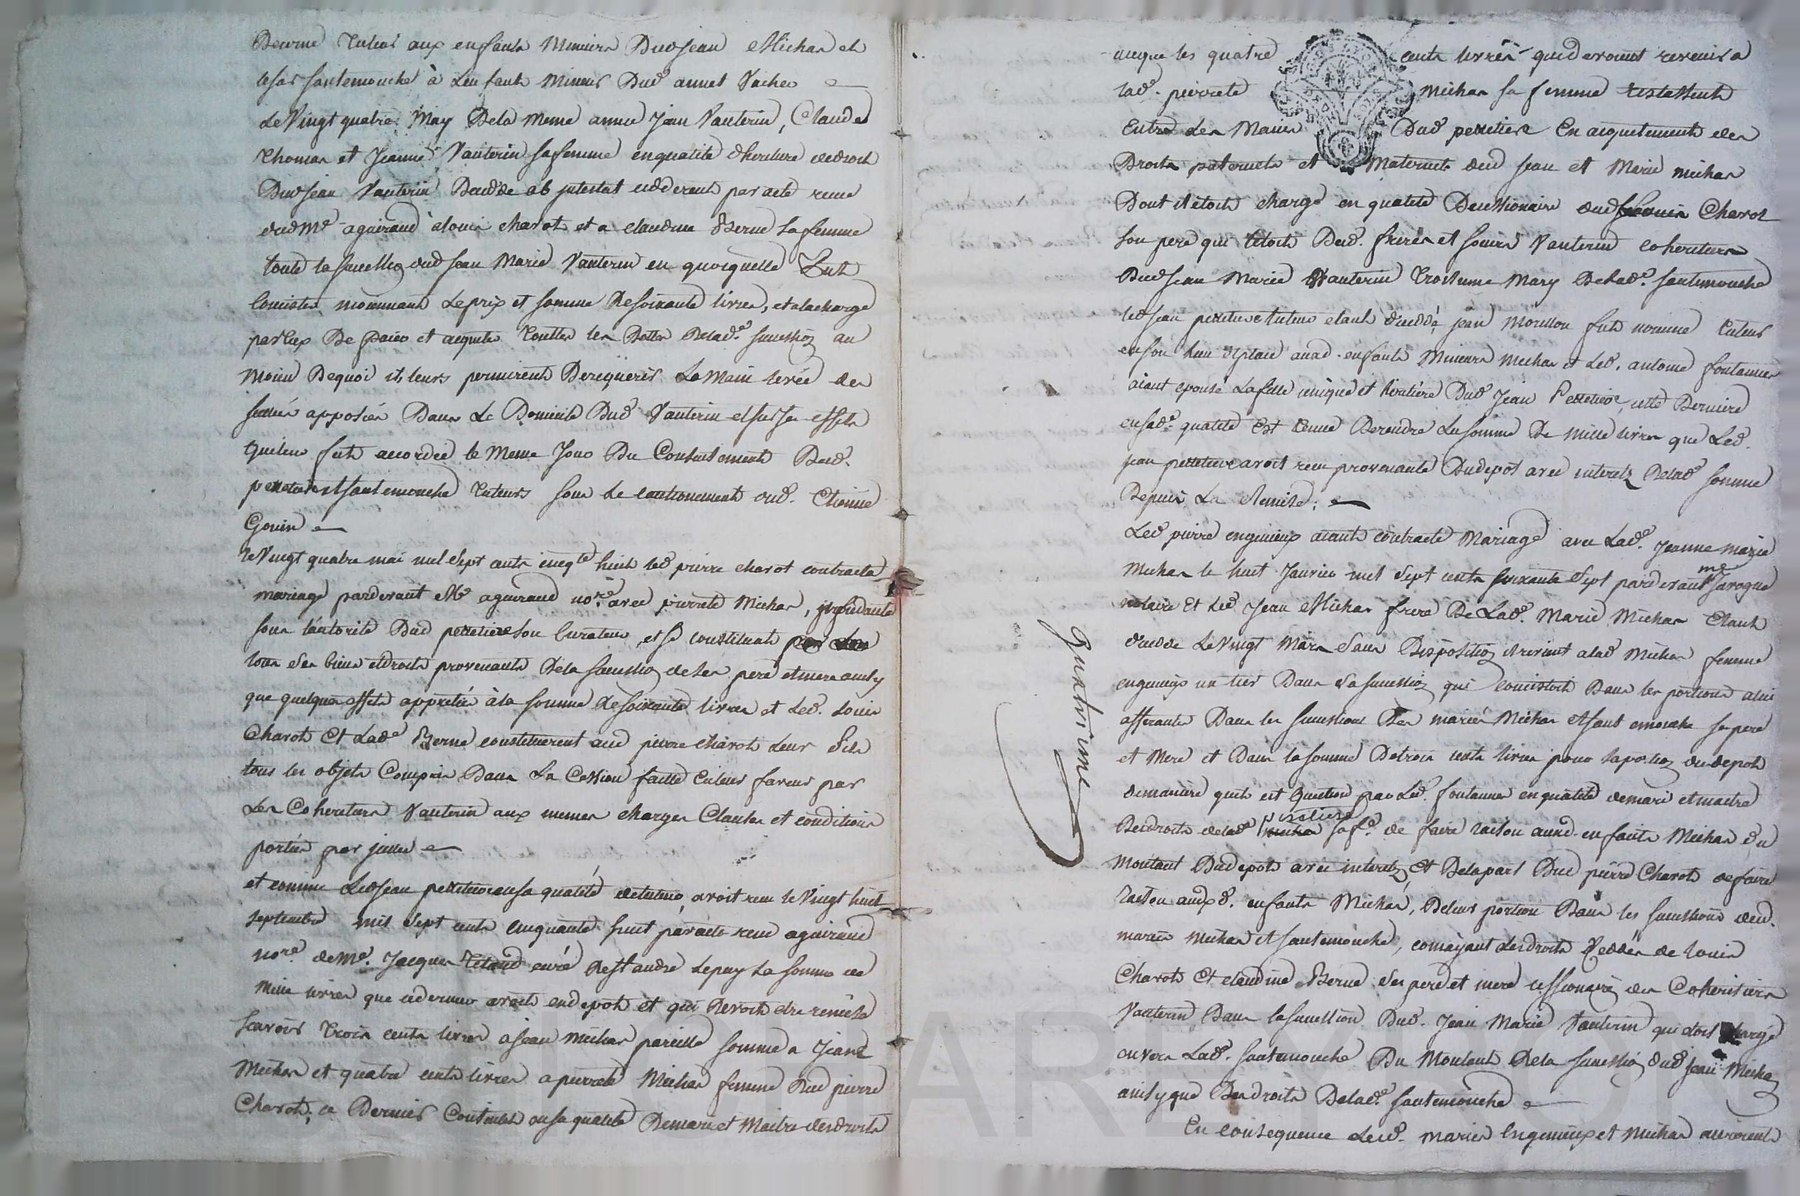 Decerné Tuteur aux enfants Mineurs Dud Jean Michan et
à Enfants Mineurs Dud annet Vacher
Le Vingt quatre May Dela Meme année Jean Vauterin, Claude
Thomas et Jeanne Vauterin sa femme en qualité d'heritiere de droit
Dud Jean Vauterin Decedde ab intestat cedderent par acte recu
dud Me aguiraud a louis charot et a claudine Berne sa femme
toute la succession dud Jean Marie Vauterin en quoi quelle put
Consister moiennant le prix et somme de soixante livres, et a la charge
par eux De paier et acquiter toutes les Dettes Delade succession au
moien Dequoi ils leurs permirent De requerir La Main levée des
scellés apposés Dans Le Domicile Dud Vauterin et sur ses effets
qui leur fut accordée le Meme Jour Du Consentement Dud.
pelletier et santemouche Tuteurs sous le cautionement dud. Etienne
Gouin
le Vingt quatre mai mil Sept cents cinqte huit led pierre charot contracta
mariage pardevant Me aguiraud nore avec pierrete Michan, procedante
sous l'autorité Dud pelletier son Curateur, et se constituat
tous ses biens et droits provenants Dela succession de ses pere et mere ainsy
que quelques effets appretiés à la somme de soixante livres et Led. Louis
Charot Et Lade Berne constituerent aud pierre charot Leur fils
tous les objets Compris Dans La Cession faitte en leur faveur par
Les Coheritiers Vauterin aux memes charges Clauses et conditions
portées par icelle
et comme Led Jean pelletier en sa qualité de tuteur, avoit recu le Vingt huit
septembre mil Sept cents Cinquante huit par acte recu aguiraud
nore de Me. Jacques curé De St andré Lepuy La somme de
Mille livres que ce dernier avoit en depot et qui Devoit etre remise
scavoir Trois cents livres a Jean Michan pareille somme a Jeane
Michan et quatre cents livres a pierrete Michan femme Dud pierre
Charot, ce Dernier en sa qualité De mari et Maitre des droits
les quatre cents livres qui devoient revenir a
lade. pierrete Michan sa femme
Entre les Mains Dud pelletier En acquitement des
Droits paternels et Maternels dud Jean et Marie Michan
Dont il etoit chargé en qualité De cessionaire dud louis Charot
son pere qui l'etoit Dud. freres et soeurs Vauterin coheritiers
Dud Jean Marie Vauterin Troisieme Mary Delade. santemouche
led Jean pelletier tuteur etant deceddé Jean Mousson fut nommé Tuteur
en son lieu et place aud. enfants Mineurs Michan et Led. antoine fontanier
aiant epousé La fille unique et heritiere Dud Jean Pelletier, cette Derniere
en sade. qualité Est tenue De rendre La somme De Mille livres que Led.
Jean pelletier avoit recu provenante Du depot avec interets Delade somme
Depuis La Remise.
Led pierre engenieux aiant contracté Mariage avec Lade. Jeanne marie
Michan le huit Janvier mil Sept cents soixante Sept pardevant me
notaire Et Led Jean Michan frere De Lade. Marie Michan Etant
decedde Le Vingt Mars sans Disposition il revient a lade Michan femme
engenieux un tier Dans sa succession qui consistoit Dans les portions a lui
afferante Dans les successions Des mariés Michan et santemouche ses pere
et Mere et Dans la somme De trois cents livres pour sa portion du depot
de maniere quil est Question par Led. fontanier en qualité de mari et maitre
Des droits delade Pelletier sa fe. de faire raison aux enfants Michan du
Montant Du depot avec interets, Et De la part Dud pierre Charot de faire
raison auxd. enfants Michan, De leur portion Dans les successions desd.
mariés Michan et santemouche, comme ayant les droits Ceddés de louis
Charot Et claudine Berne ses pere et mere cessionaires des Coheritiers
Vauterin Dans la succession Dud. Jean Marie Vauterin qui etoit chargé
envers Lade. santemouche Du Montant De la succession dud Jean Michan
ainsy que Des droits Delade. santemouche
En consequence Lesd. mariés Engenieux et Michan